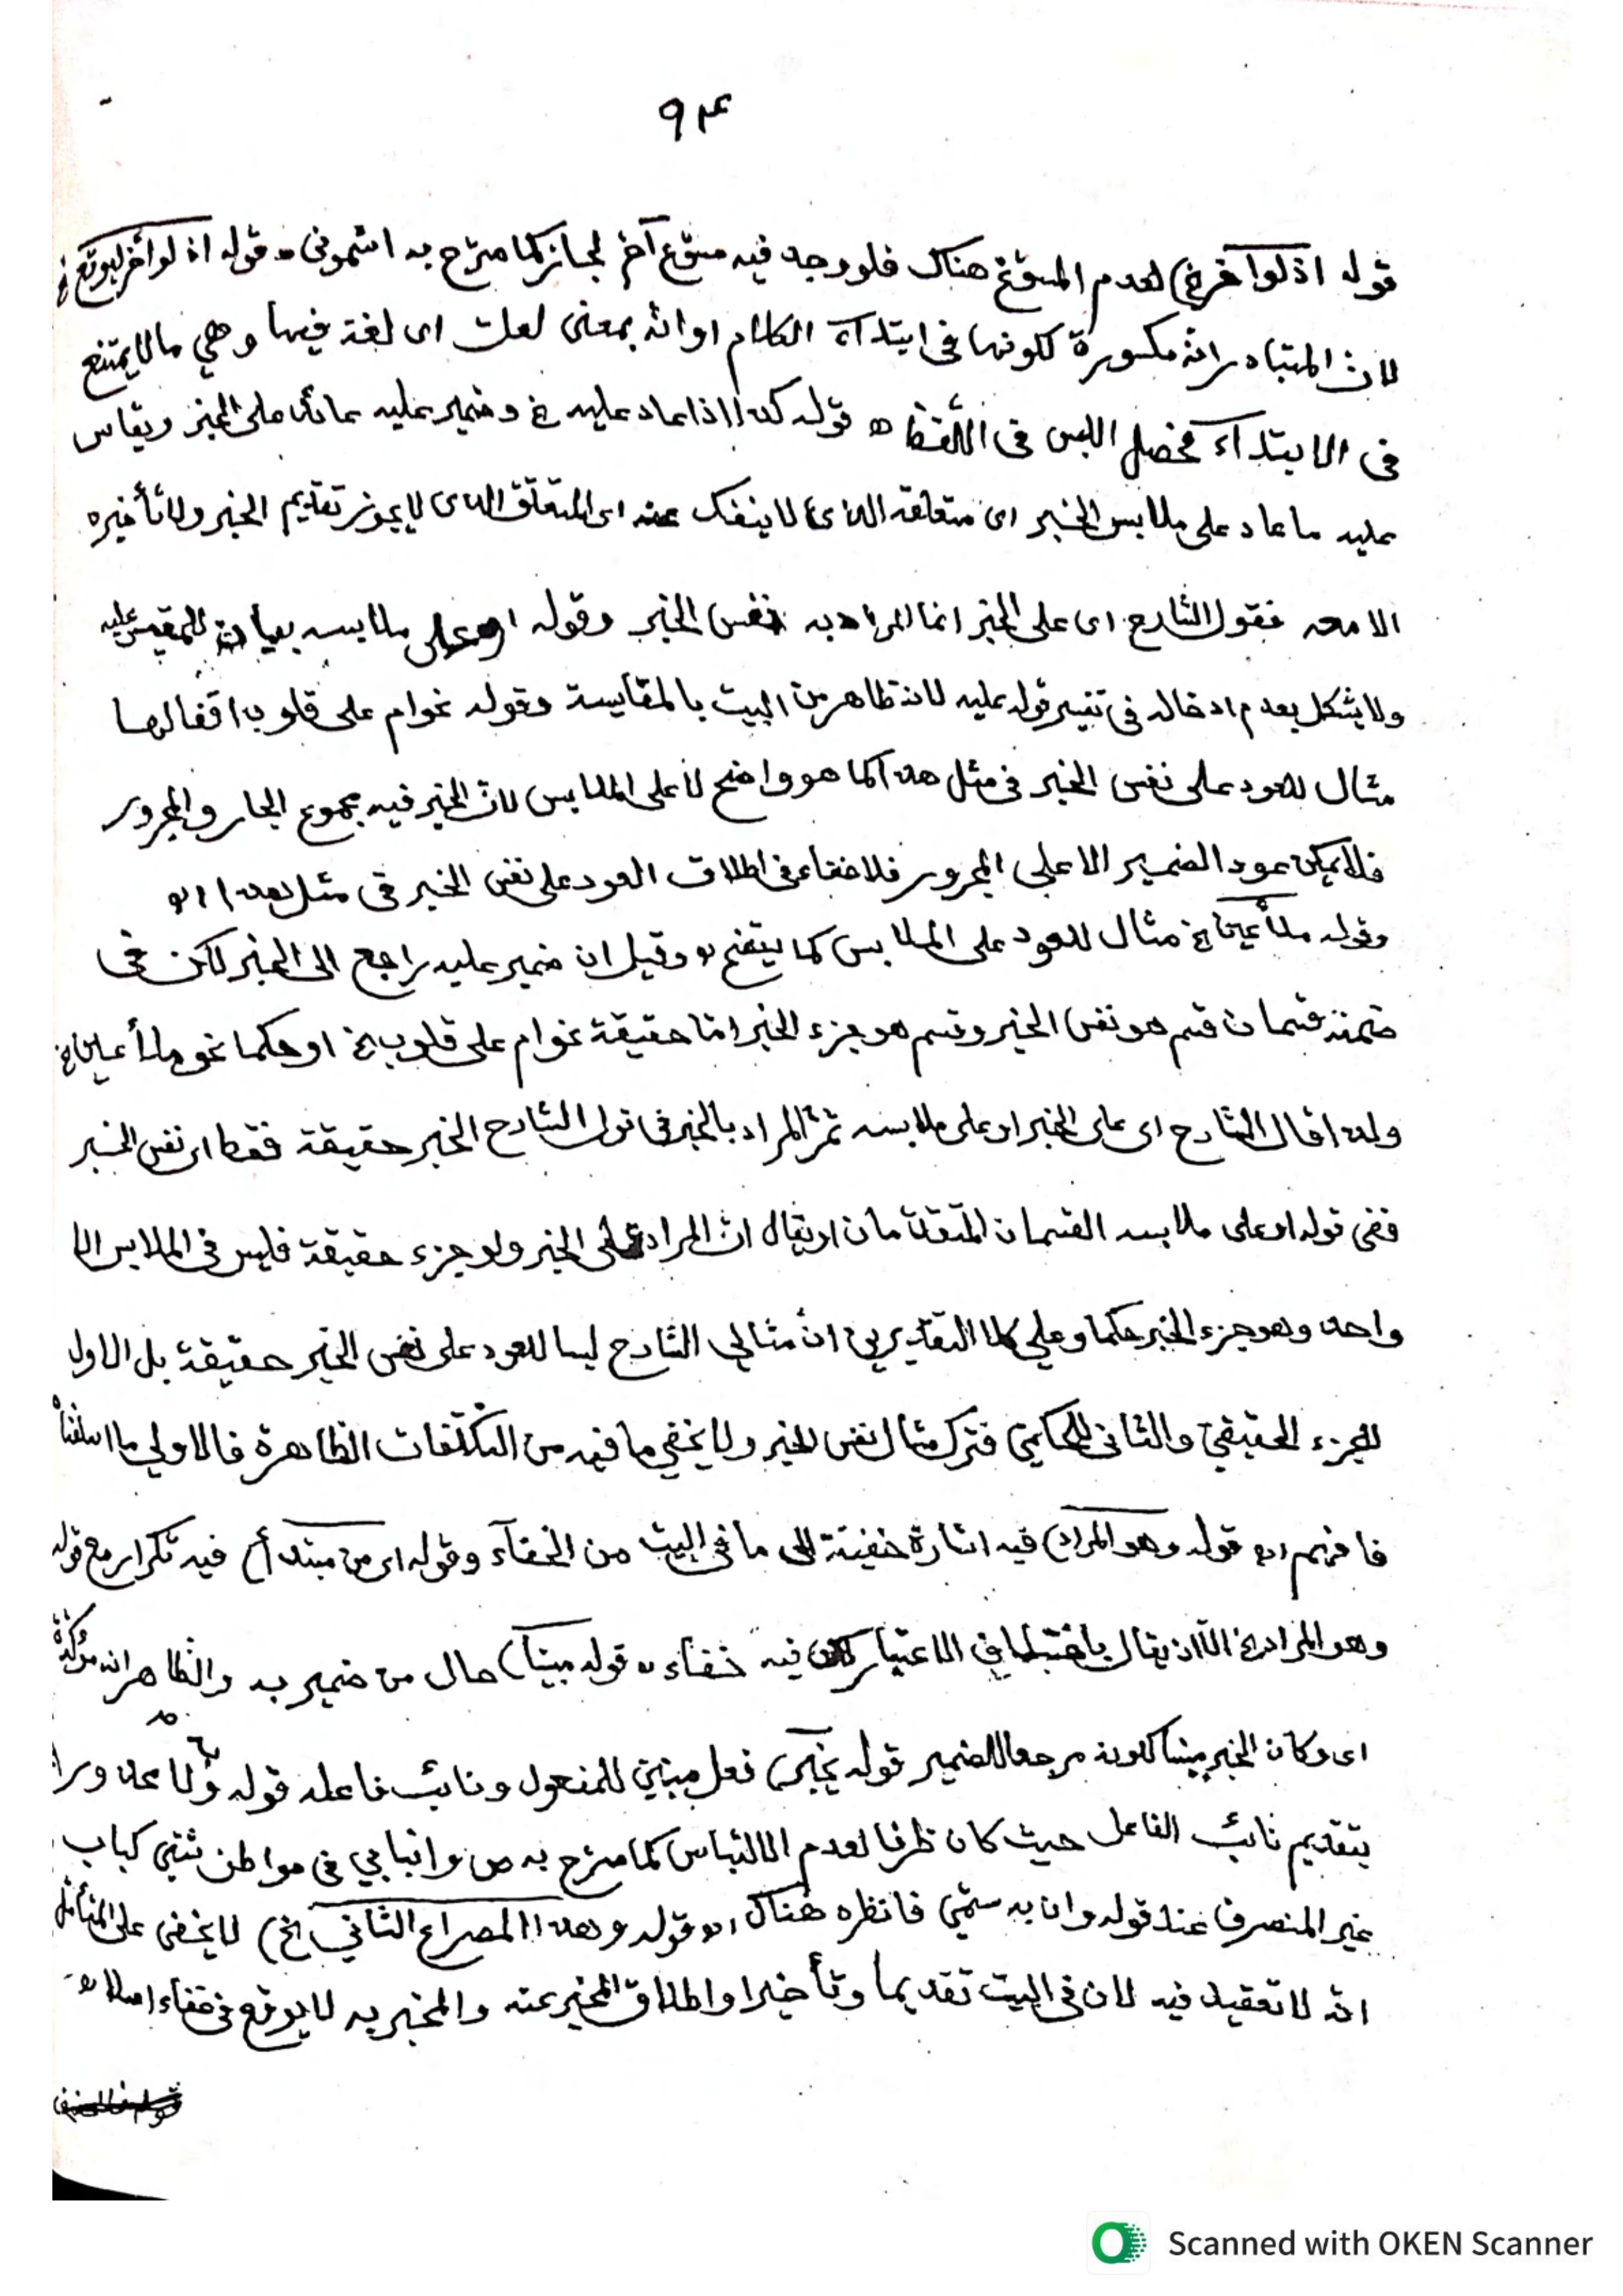 ٩٣
قوله اذ لو اخر الخ) لعدم المسوّغ هناك فلو وجد فيه مسوّغ آخر لجاز كما صرّح به اشمونى ه قوله اذ لو أخر ليوقع
لانّ المتبادر انّه مكسورة لكونها فى ابتدآء الكلام او انّه بمعنى لعلّ اى لغة فيها وهي ما لا يمتنع
فى الابتدآء فحصل اللبس فى التلفّظ ه قوله كذا اذا عاد عليه الخ وضمير عليه عائد على الخبر ويقاس
عليه ما عاد على ملابس الخبر اى متعلقه الذى لا ينفك عنه اى المتعلّق الذى لا يجوز تقديم الخبر ولا تأخيره
الا معه فقول الشارح اى على الخبر انما المراد به نفس الخبر وقوله او على ملابسه بيان للمقيس عليه
ولا يشكل بعدم ادخاله فى تفسير قوله عليه لانه ظاهر من البيت بالمقايسة وقوله نحو ام على قلوب اقفالها
مثال للعود على نفس الخبر فى مثل هذا كما هو واضح لا على الملابس لانّ الخبر فيه مجموع الجار والمجرور
فلا يمكن عود الضمير الا على المجرور فلا خفاء فى اطلاق العود على نفس الخبر فى مثل هذا اه
وقوله ملأ عين الخ مثال للعود على الملابس كما يتضح ه وقيل ان ضمير عليه راجع الى الخبر لكن فى
ضمنه قسمان قسم هو نفس الخبر وقسم هو جزء الخبر امّا حقيقة نحو ام على قلوب الخ او حكما نحو ملأ عين الخ
ولذا قال الشارح اى على الخبر او على ملابسه ثمّ المراد بالخبر فى قول الشارح الخبر حقيقة فقط اى نفس الخبر
ففى قوله او على ملابسه القسمان المتقدّمان او يقال انّ المراد على الخبر ولو جزء حقيقة فليس فى الملابس الا
واحد وهو جزء الخبر حكما وعلى كلا التقديرين انّ مثالي الشارح ليسا للعود على نفس الخبر حقيقة بل الاول
للجزء الحقيقيّ والثانى للحكميّ فترك مثال نفس الخبر ولا يخفي ما فيه من التكلّفات الظاهرة فالاولي ما اسلفناه
فافهم اه قوله وهو المراد) فيه اشارة خفيّة الى ما فى البيت من الخفآء وقوله اى من مبتدأ) فيه تكرار مع قوله
وهو المراد الخ الّا ان يقال باختلاف الاعتبار لكن فيه خفاء ه قوله مبينا) حال من ضمير به والظاهر انه مؤكّدة
اى وكان الخبر مبينا لكونه مرجعا للضمير قوله يخبر) فعل مبنيّ للمفعول ونائب فاعله قوله به ولا محذور
بتقديم نائب الفاعل حيث كان ظرفا لعدم الالتباس كما صرّح به ص وانبابي فى مواطن شتّي كباب
غير المنصرف عند قوله وان به سمّي فانظره هناك اه قوله وهذا المصراع الثانى الخ) لا يخفى على المتأمّل
انّه لا تعقيد فيه لان فى البيت تقديما وتأخيرا واطلاق المخبر عنه والمخبر به لا يوقع فى خفاء اصلا ه
Scanned with OKEN Scanner